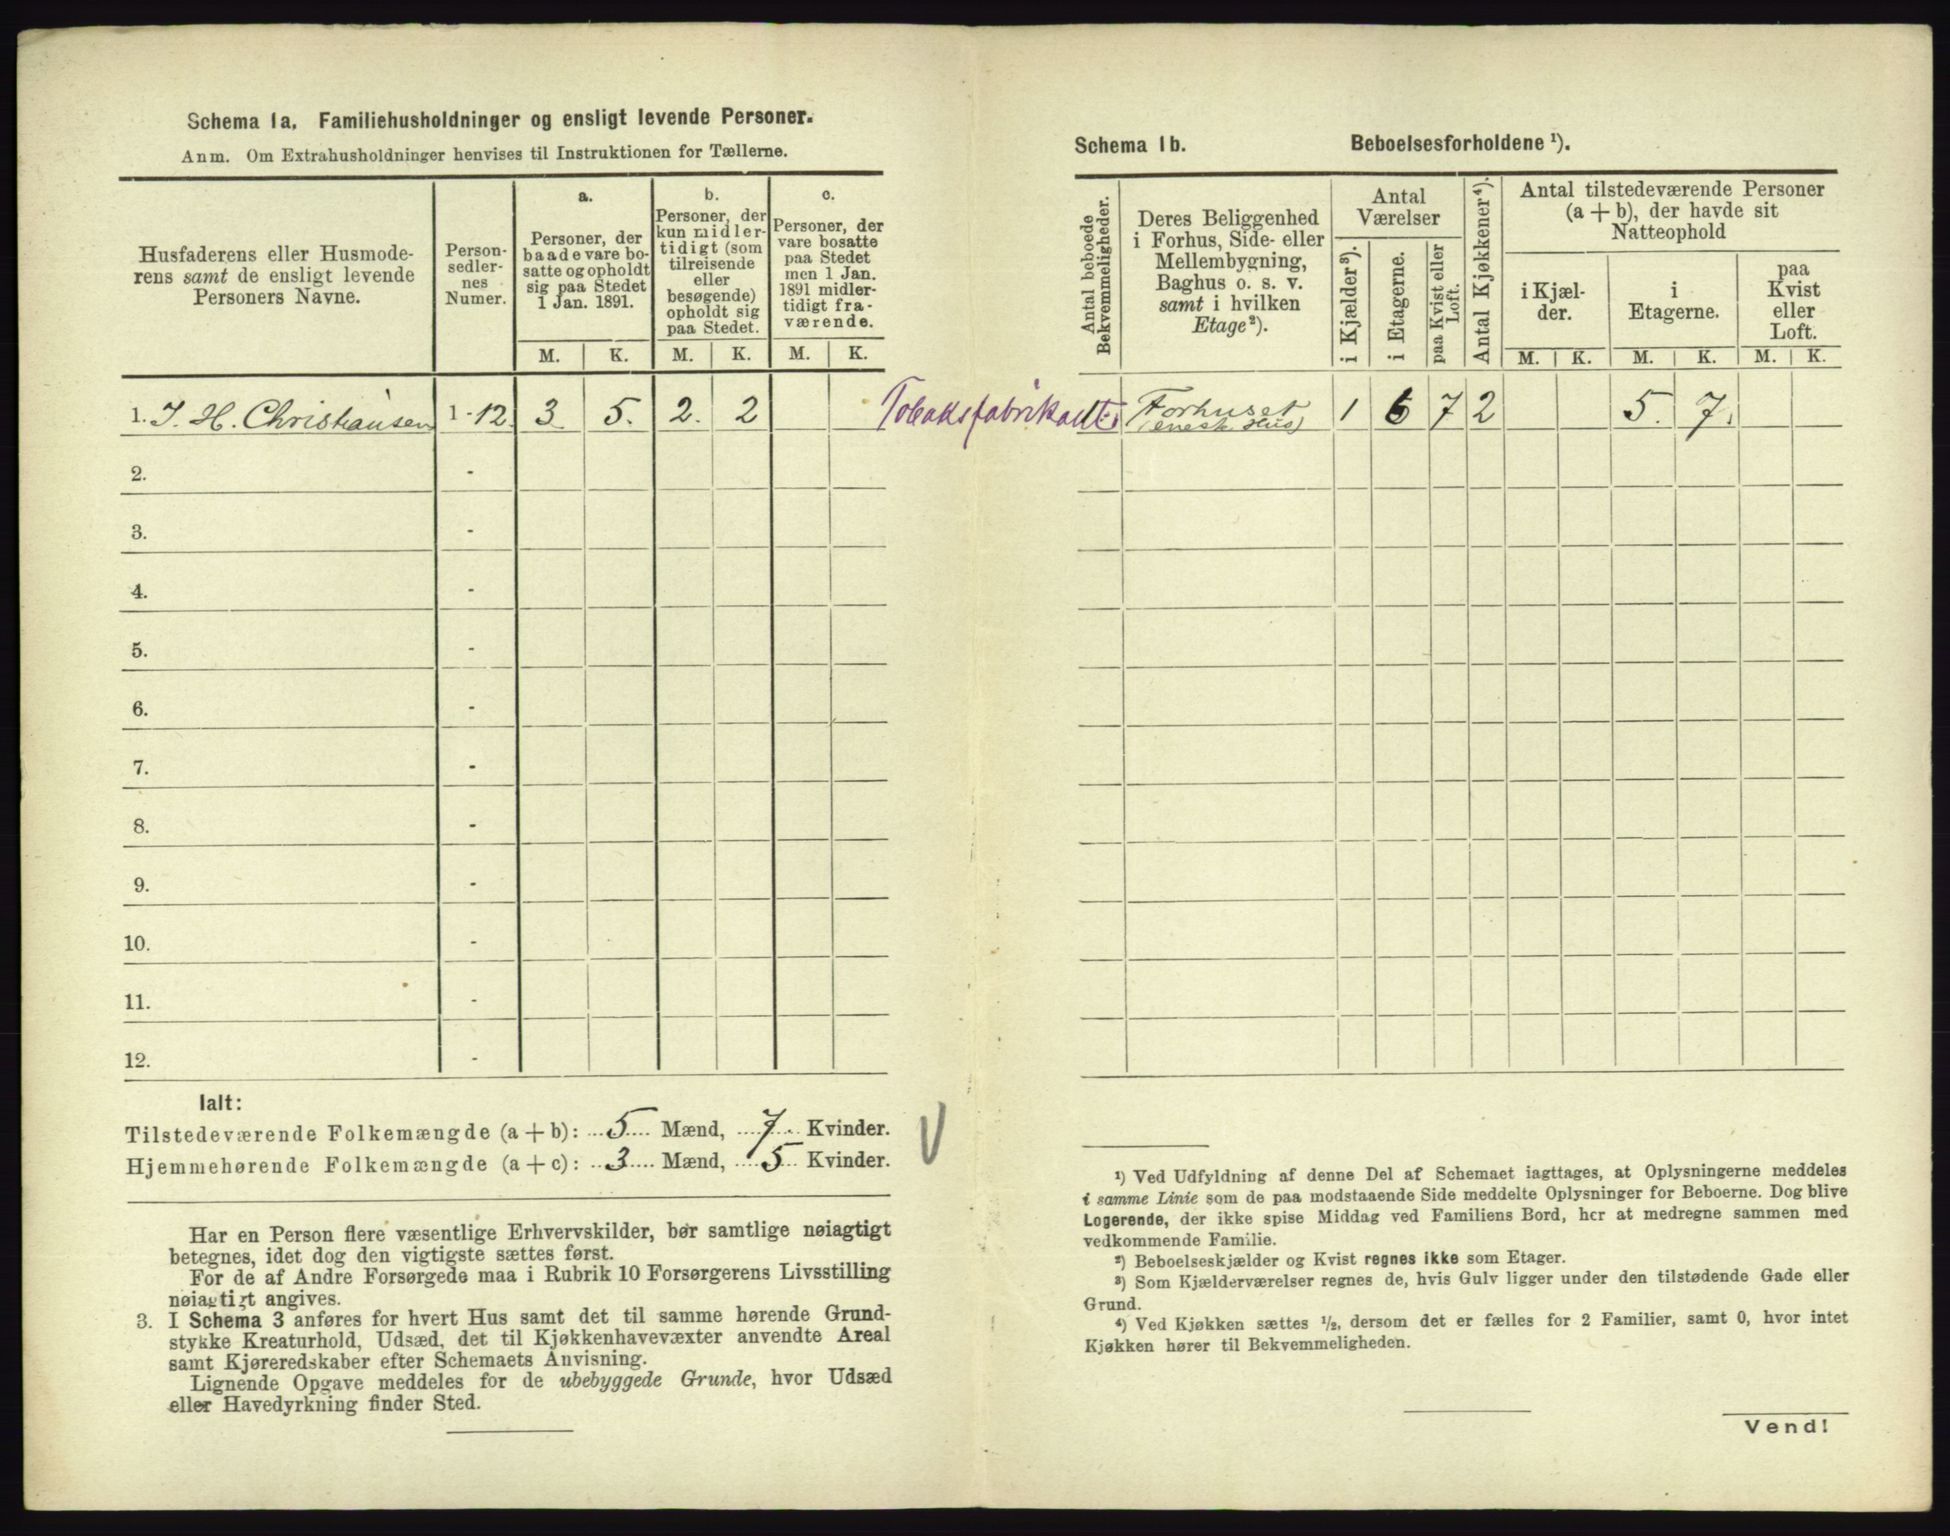 Schema 1a. Familiehusholdninger og ensligt levende Personer.
Anm. Om Extrahusholdninger henvises til Instruktionen for Tællerne.
Husfaderens eller Husmoderens samt de ensligt levende Personers Navne.
Personsedlernes Numer.
a.
Personer, der baade vare bosatte og opholdt sig paa Stedet 1 Jan. 1891.
b.
Personer, der kun midlertidigt (som tilreisende eller besøgende) opholdt sig paa Stedet.
c.
Personer, der vare bosatte paa Stedet men 1 Jan. 1891 midlertidigt fraværende.
M. K. M. K. M. K.
1. J. H. Christiansen 1-12. 3. 5. 2. 2
2. -
3. -
4. -
5. -
6. -
7. -
8. -
9. -
10. -
11. -
12. -
Ialt:
Tilstedeværende Folkemængde (a + b): 5 Mænd, 7 Kvinder.
Hjemmehørende Folkemængde (a + c): 3 Mænd, 5 Kvinder.
Har en Person flere væsentlige Erhvervskilder, bør samtlige nøiagtigt
betegnes, idet dog den vigtigste sættes først.
For de af Andre Forsørgede maa i Rubrik 10 Forsørgerens Livsstilling
nøiagtigt angives.
3. I Schema 3 anføres for hvert Hus samt det til samme hørende Grund-
stykke Kreaturhold, Udsæd, det til Kjøkkenhavevæxter anvendte Areal
samt Kjøreredskaber efter Schemaets Anvisning.
Lignende Opgave meddeles for de ubebyggede Grunde, hvor Udsæd
eller Havedyrkning finder Sted.
Schema 1b. Beboelsesforholdene ¹).
Antal beboede Bekvemmeligheder.
Deres Beliggenhed i Forhus, Side- eller Mellembygning, Baghus o. s. v. samt i hvilken Etage²).
Antal Værelser
i Kjælder³).
i Etagerne.
paa Kvist eller Loft.
Antal Kjøkkener⁴).
Antal tilstedeværende Personer (a + b), der havde sit Natteophold
i Kjælder.
i Etagerne.
paa Kvist eller Loft.
M. K. M. K. M. K.
Tobaksfabrikant. Forhuset 1 6 7 2 5. 7.
¹) Ved Udfyldning af denne Del af Schemaet iagttages, at Oplysningerne meddeles
i samme Linie som de paa modstaaende Side meddelte Oplysninger for Beboerne. Dog blive
Logerende, der ikke spise Middag ved Familiens Bord, her at medregne sammen med
vedkommende Familie.
²) Beboelseskjælder og Kvist regnes ikke som Etager.
³) Som Kjælderværelser regnes de, hvis Gulv ligger under den tilstødende Gade eller
Grund.
⁴) Ved Kjøkken sættes ½, dersom det er fælles for 2 Familier, samt 0, hvor intet
Kjøkken hører til Bekvemmeligheden.
Vend!